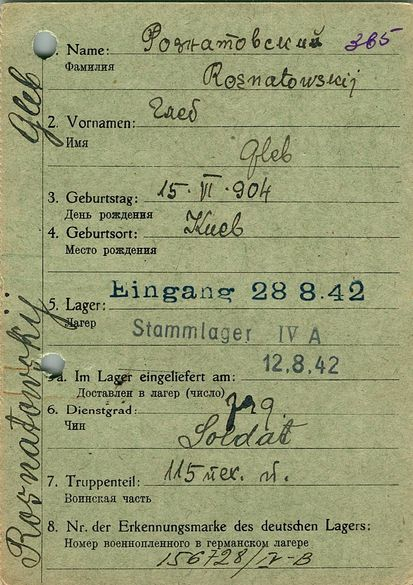 1. Name: Рознатовский 365
Фамилия
Rosnatowskij
2. Vornamen: Глеб
Имя
Gleb
3. Geburtstag: 15. VI. 904
День рождения
4. Geburtsort: Киев
Место рождения
Eingang 28 8.42
5. Lager:
Лагер
Stammlager IV A
12.8.42
5a. Im Lager eingeliefert am:
Доставлен в лагер (число)
6. Dienstgrad:
Чин
Soldat
7. Truppenteil: 115 п.
Воинская часть
8. Nr. der Erkennungsmarke des deutschen Lagers:
Номер военнопленного в германском лагере
156728/IV-B
Rosnatowskij Gleb